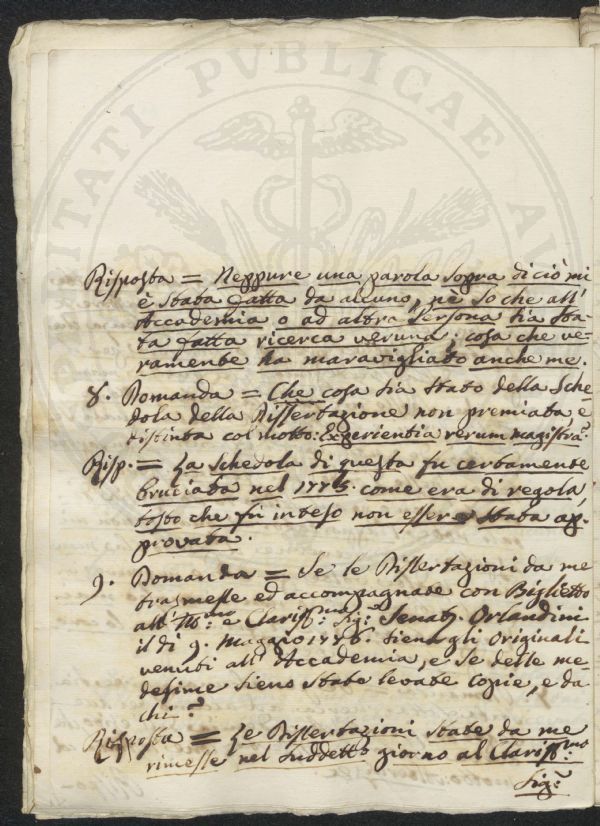 Risposta = Neppure una parola sopra di ciò mi
è stata fatta da alcuno, nè so che all'
Accademia o ad altra Persona sia sta-
ta fatta ricerca veruna; cosa che ve-
ramente ha maravigliato anche me.
8. Domanda = Che cosa sia stato della Sche-
dola della Dissertazione non premiata e
distinta col motto: Experientia rerum magistra?
Risp. = La Schedola di questa fu certamente
bruciata nel 1775. come era di regola,
tosto che fu inteso non essere stata ap-
provata.
9. Domanda = Se le Dissertazioni da me
trasmesse ed accompagnate con Biglietto
all' Ill:mo e Clariss:mo Sig:r Senat:r Orlandini
il di 9. Maggio 1776. sieno gli originali
venuti all' Accademia, e se delle me
desime sieno state levate copie, e da
chi?
Risposta = Le Dissertazioni state da me
rimesse nel suddetto giorno al Clariss:mo
Sig:r
VTILITATI PVBLICAE